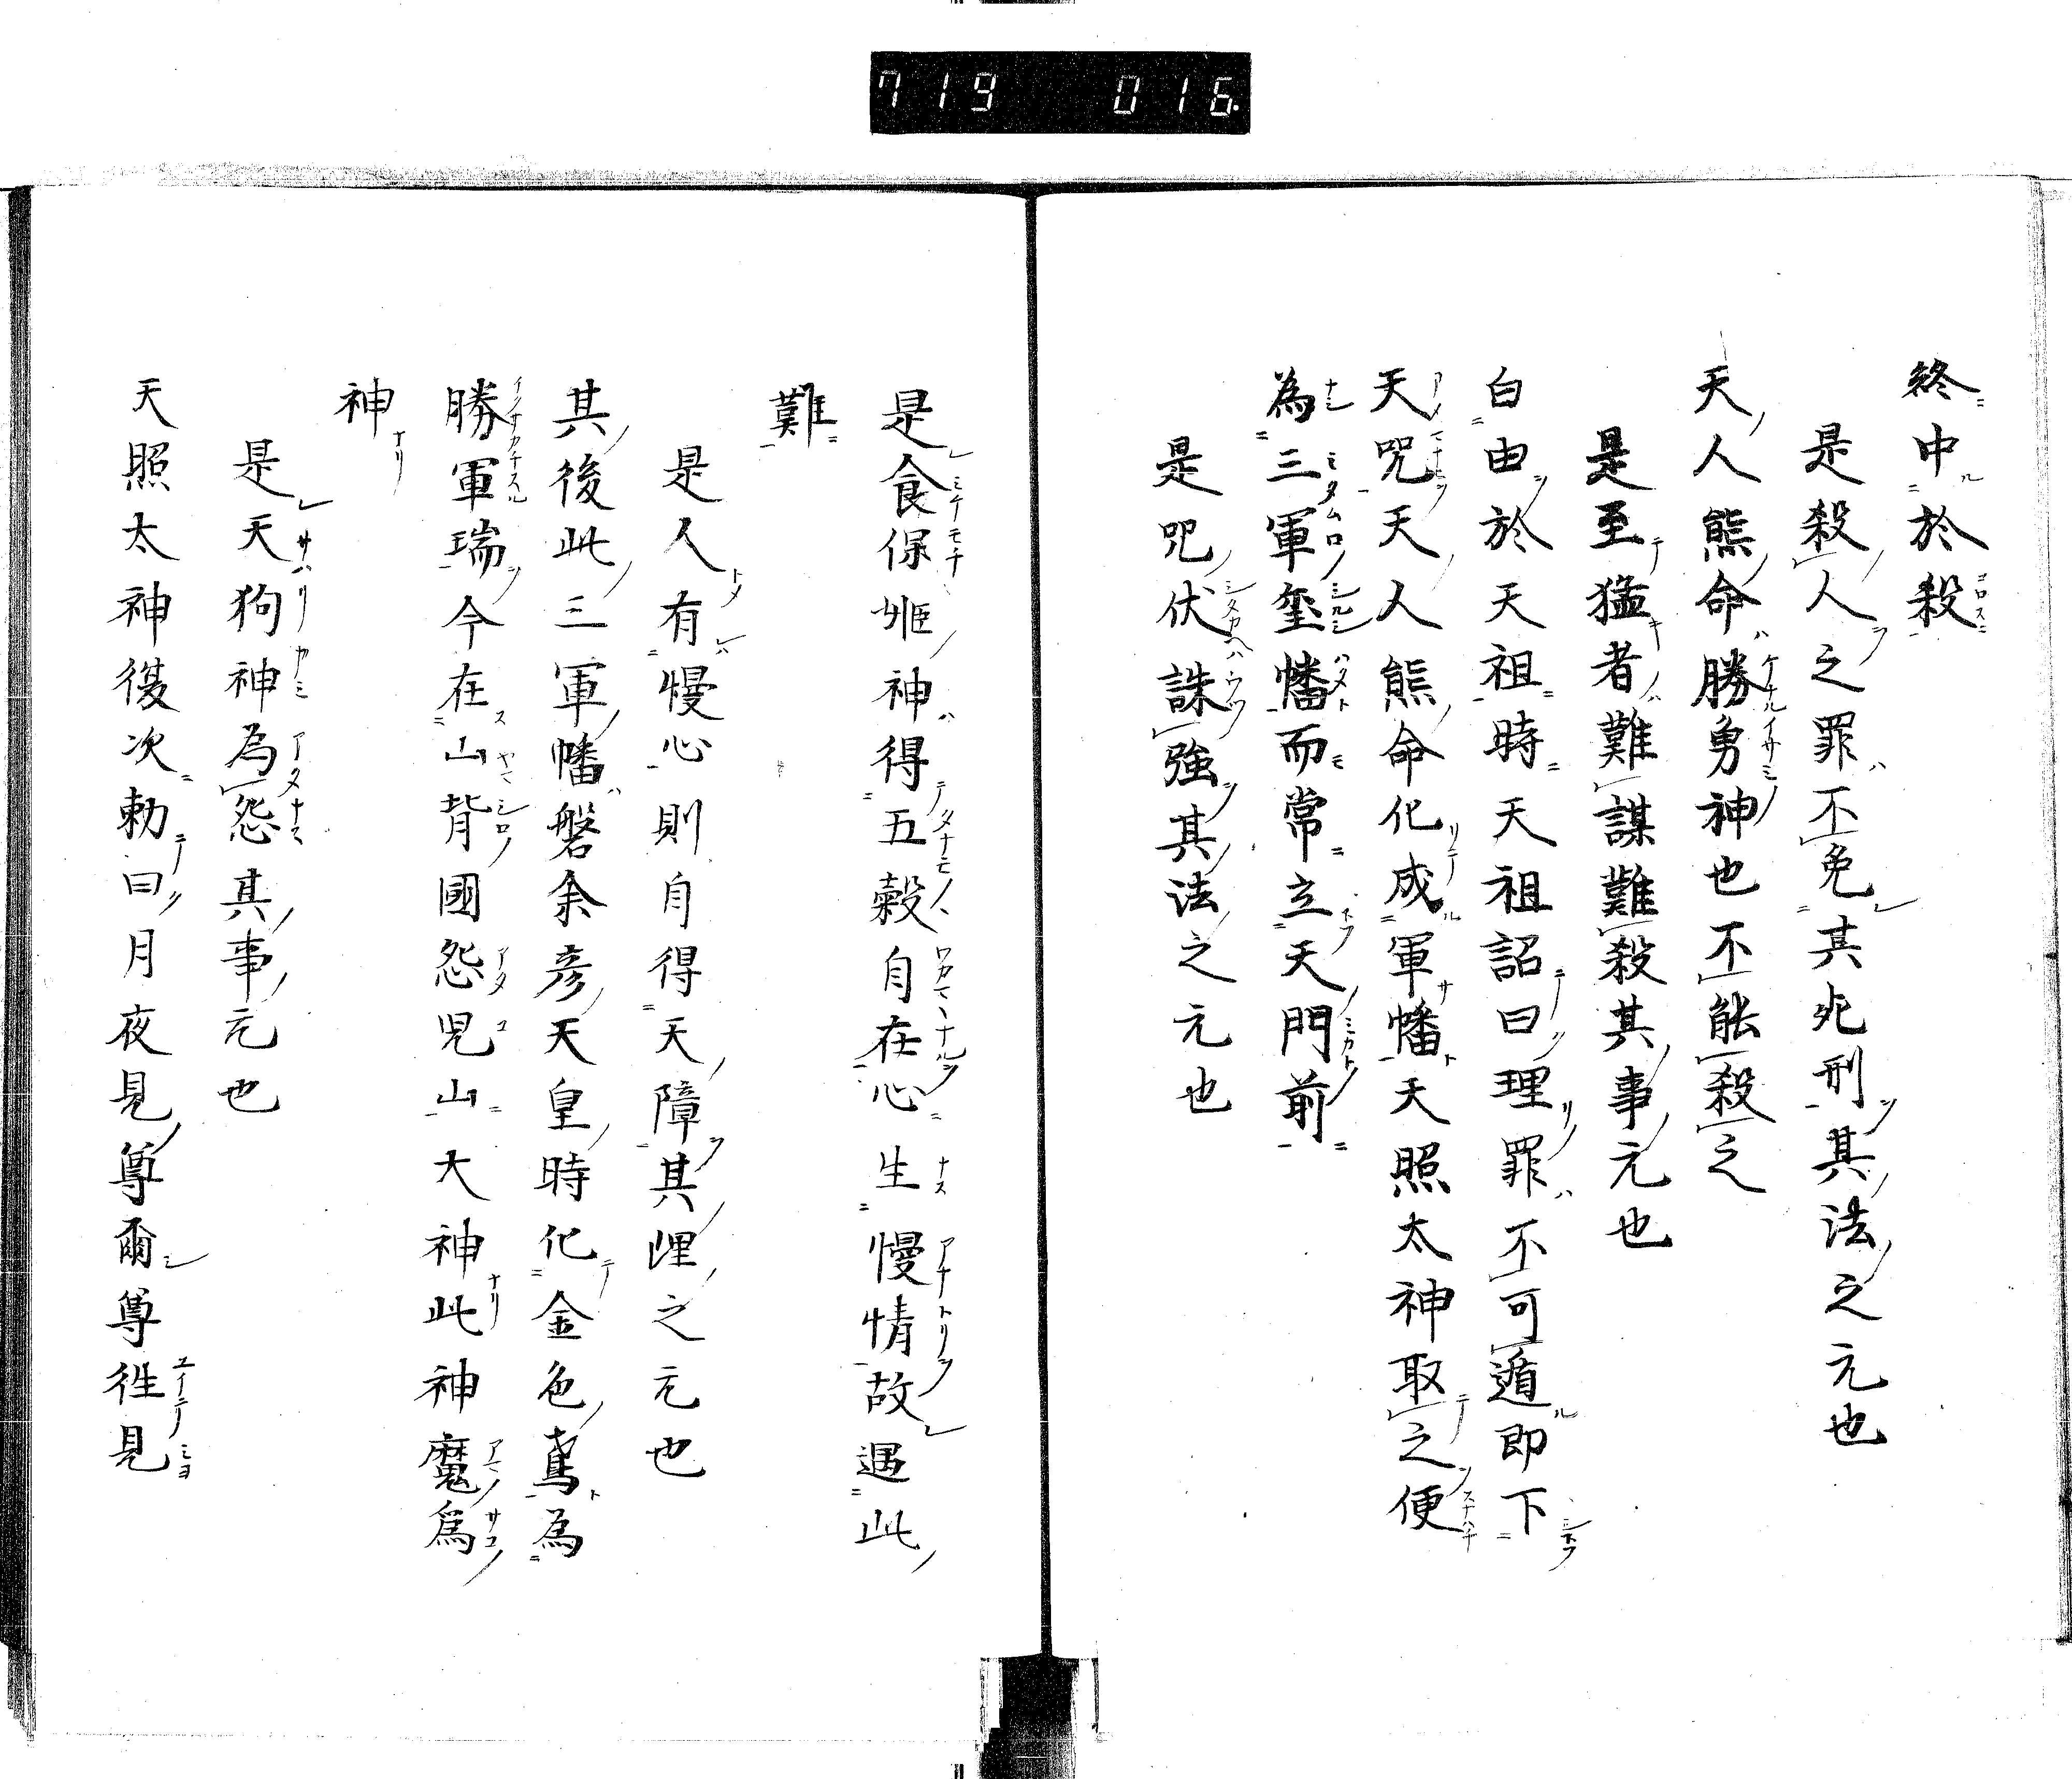 719 016
終中於殺
是殺人之罪不免其死刑其法之元也
天人熊命勝勇神也不能殺之
是至猛者難謀難殺其事元也
白由於天祖時天祖詔曰理罪不可遁即下
天咒天人熊命化成軍幡天照太神取之便
為三軍璽幡而常立天門前
是咒伏誅強其法之元也
是食保姫神得五穀自在心生慢情故遇此
難
是人有慢心則自得天障其理之元也
其後此三軍幡磐余彦天皇時化金色鳶為
勝軍瑞今在山背國怨児山大神此神魔為
神
是天狗神為怨其事元也
天照太神復次勅曰月夜見尊爾尊往見